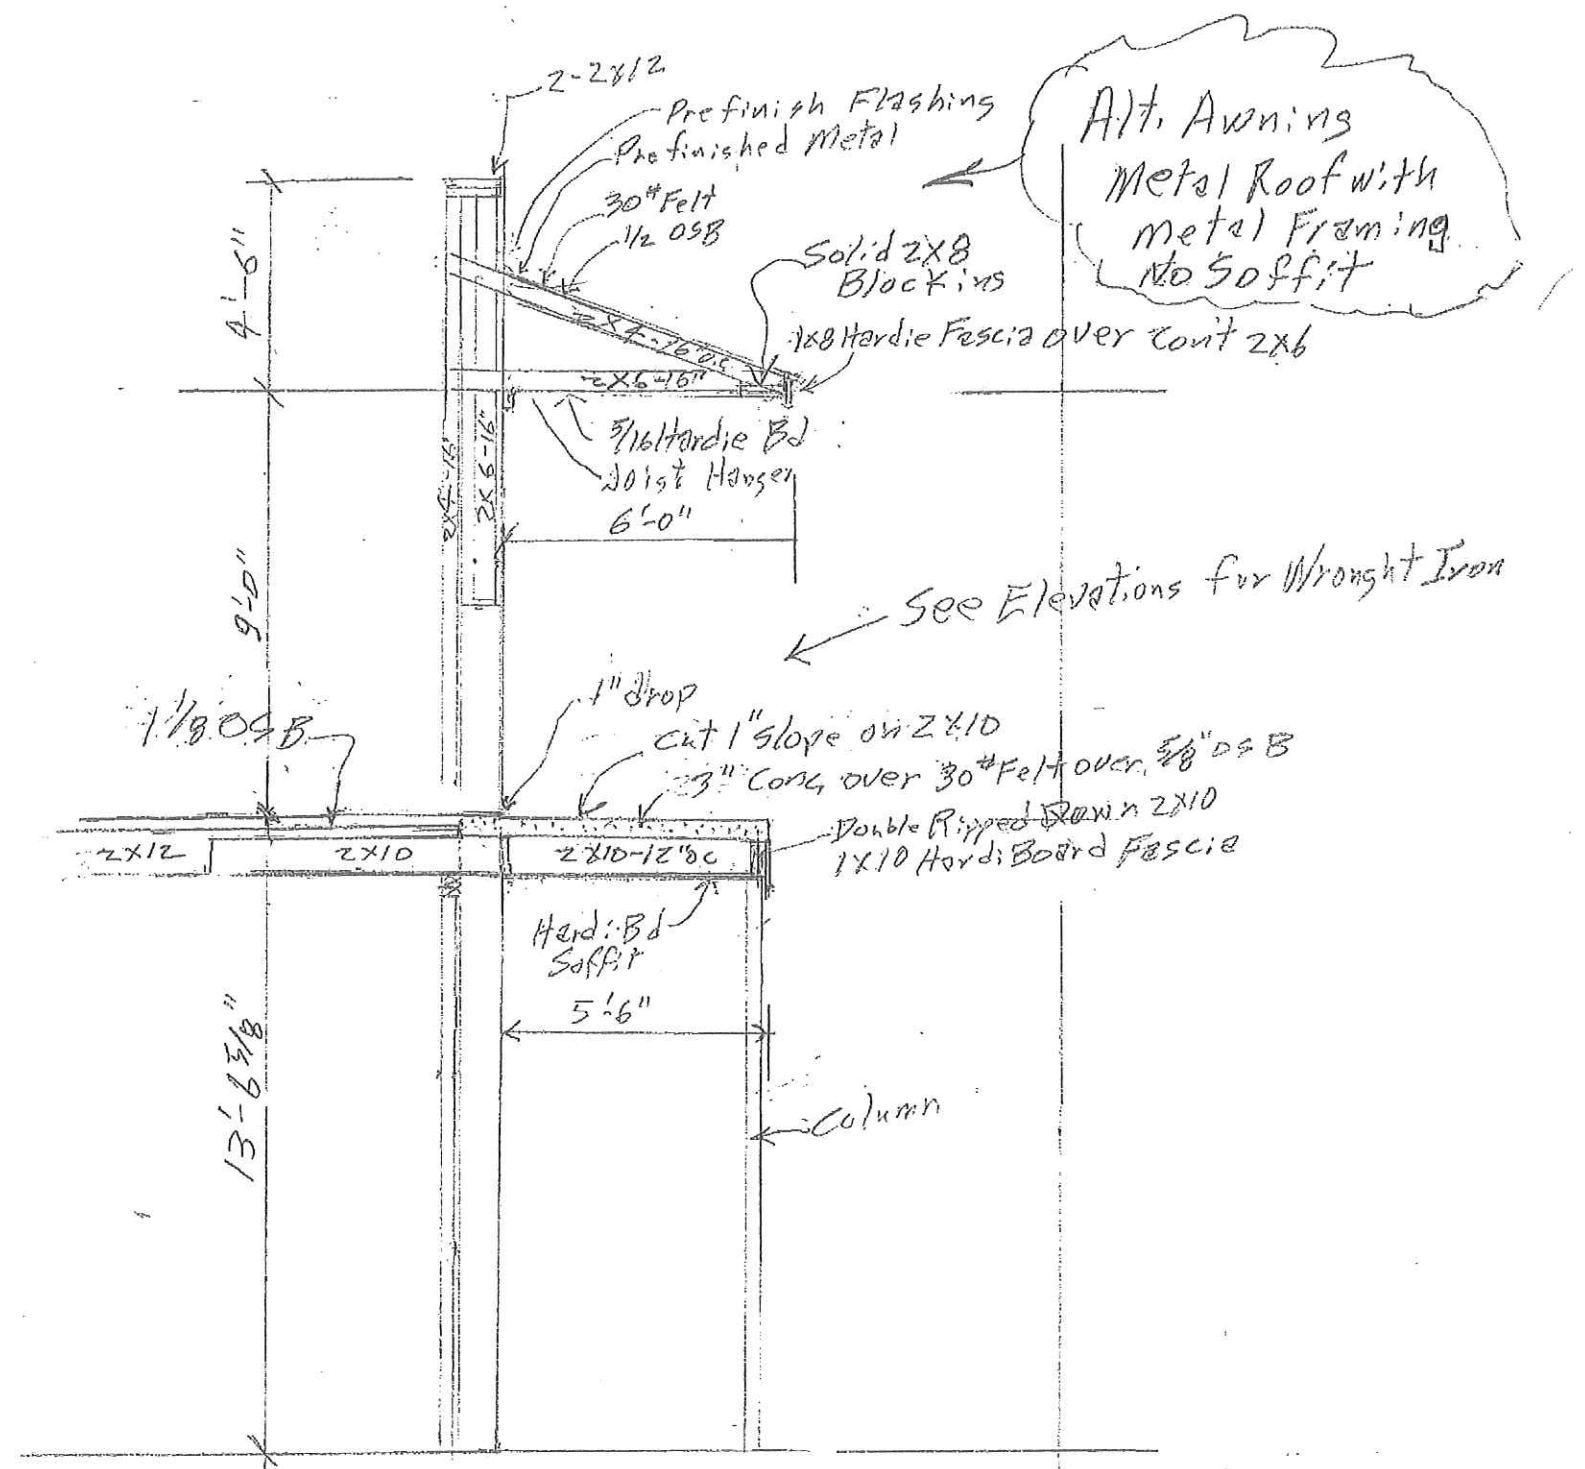 2-2x12
Prefinish Flashing
Prefinished Metal
30# Felt
1/2 OSB
Alt. Awning
Metal Roof with
metal Framing
No Soffit
Solid 2X8
Blocking
1x8 Hardie Fascia over cont 2x6
4'-6"
2x4-16"oc
2x6-16"
5/16 Hardie Bd
Joist Hanger
6'-0"
2x4-16"
2x6-16"
9'-0"
See Elevations for Wrought Iron
1 1/8 OSB
1" drop
Cut 1" slope on 2X10
3" Conc, over 30# Felt over 5/8" OSB
Double Ripped Down 2X10
1X10 HardiBoard Fascia
2X12
2X10
2X10-12"oc
Hardi-Bd
Soffit
5'-6"
13'-6 5/8"
Column